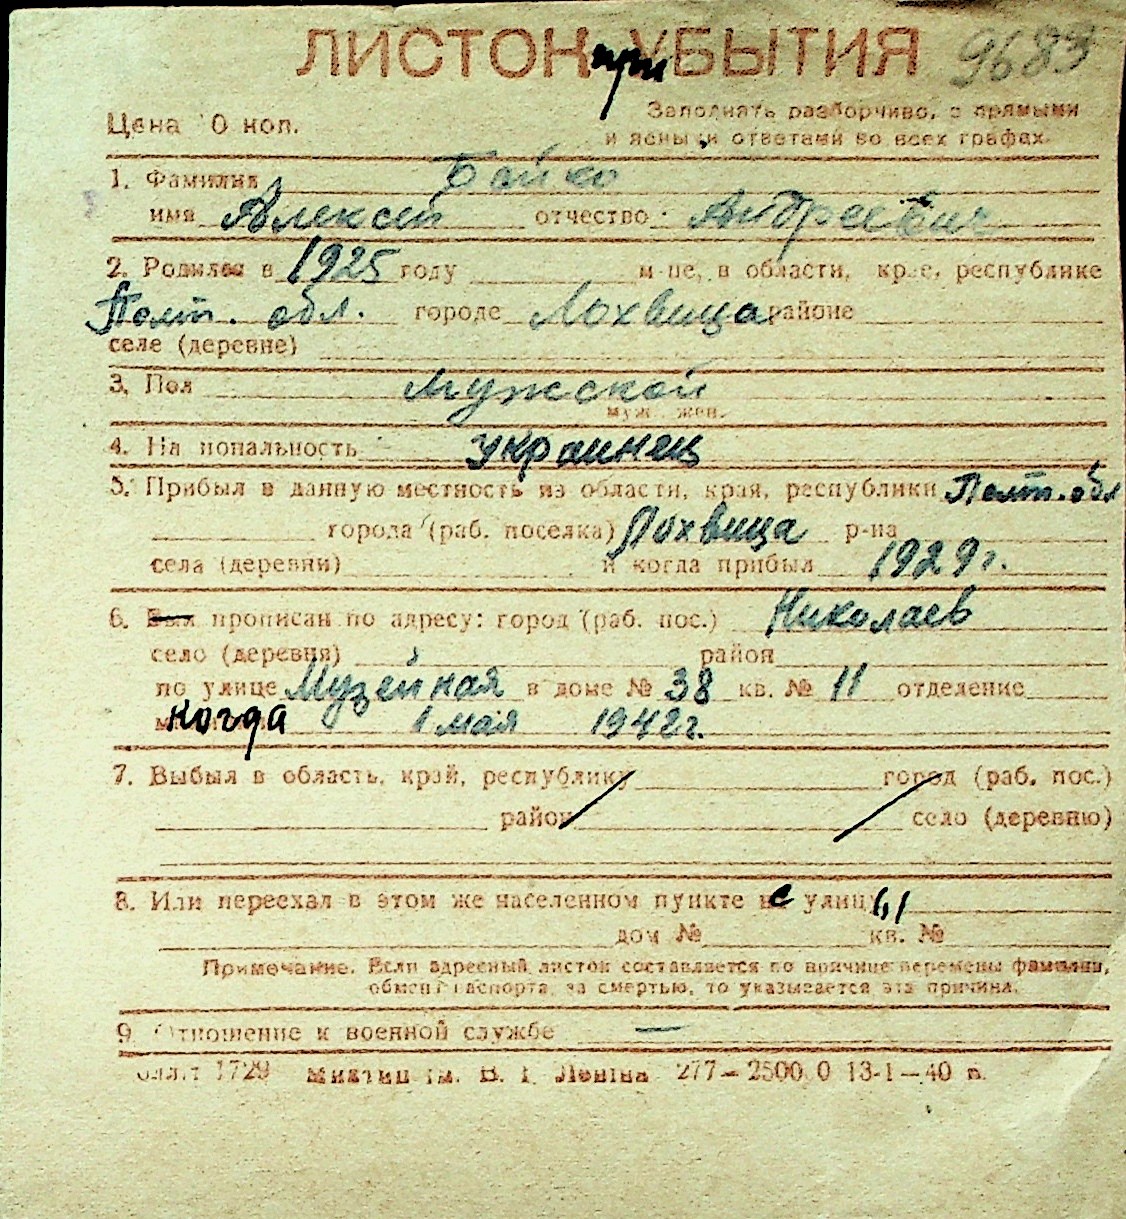 ЛИСТОК при УБЫТИЯ 9683
Цена 10 коп.
Заполнять разборчиво, с прямыми
и ясными ответами во всех графах.
1. Фамилия Бойко
имя Алексей отчество Андреевич
2. Родился в 1925 году м-це, в области, крае, республике
Полт. обл. городе Лохвица районе
селе (деревне)
3. Пол Мужской
муж. жен.
4. Национальность украинец
5. Прибыл в данную местность из области, края, республики Полт. обл
города (раб. поселка) Лохвица р-на
села (деревни) и когда прибыл 1929 г.
6. Был прописан по адресу: город (раб. пос.) Николаев
село (деревня) район
по улице Музейная в доме № 38 кв. № 11 отделение
когда 1 мая 1942 г.
7. Выбыл в область, край, республику город (раб. пос.)
район село (деревню)
8. Или переехал в этом же населенном пункте с улицы
дом № кв. №
Примечание. Если адресный листок составляется по причине перемены фамилии,
обмен паспорта, за смертью, то указывается эта причина.
9. Отношение к военной службе —
1729 им. В. І. Леніна 277—2500,0 13-1—40 в.